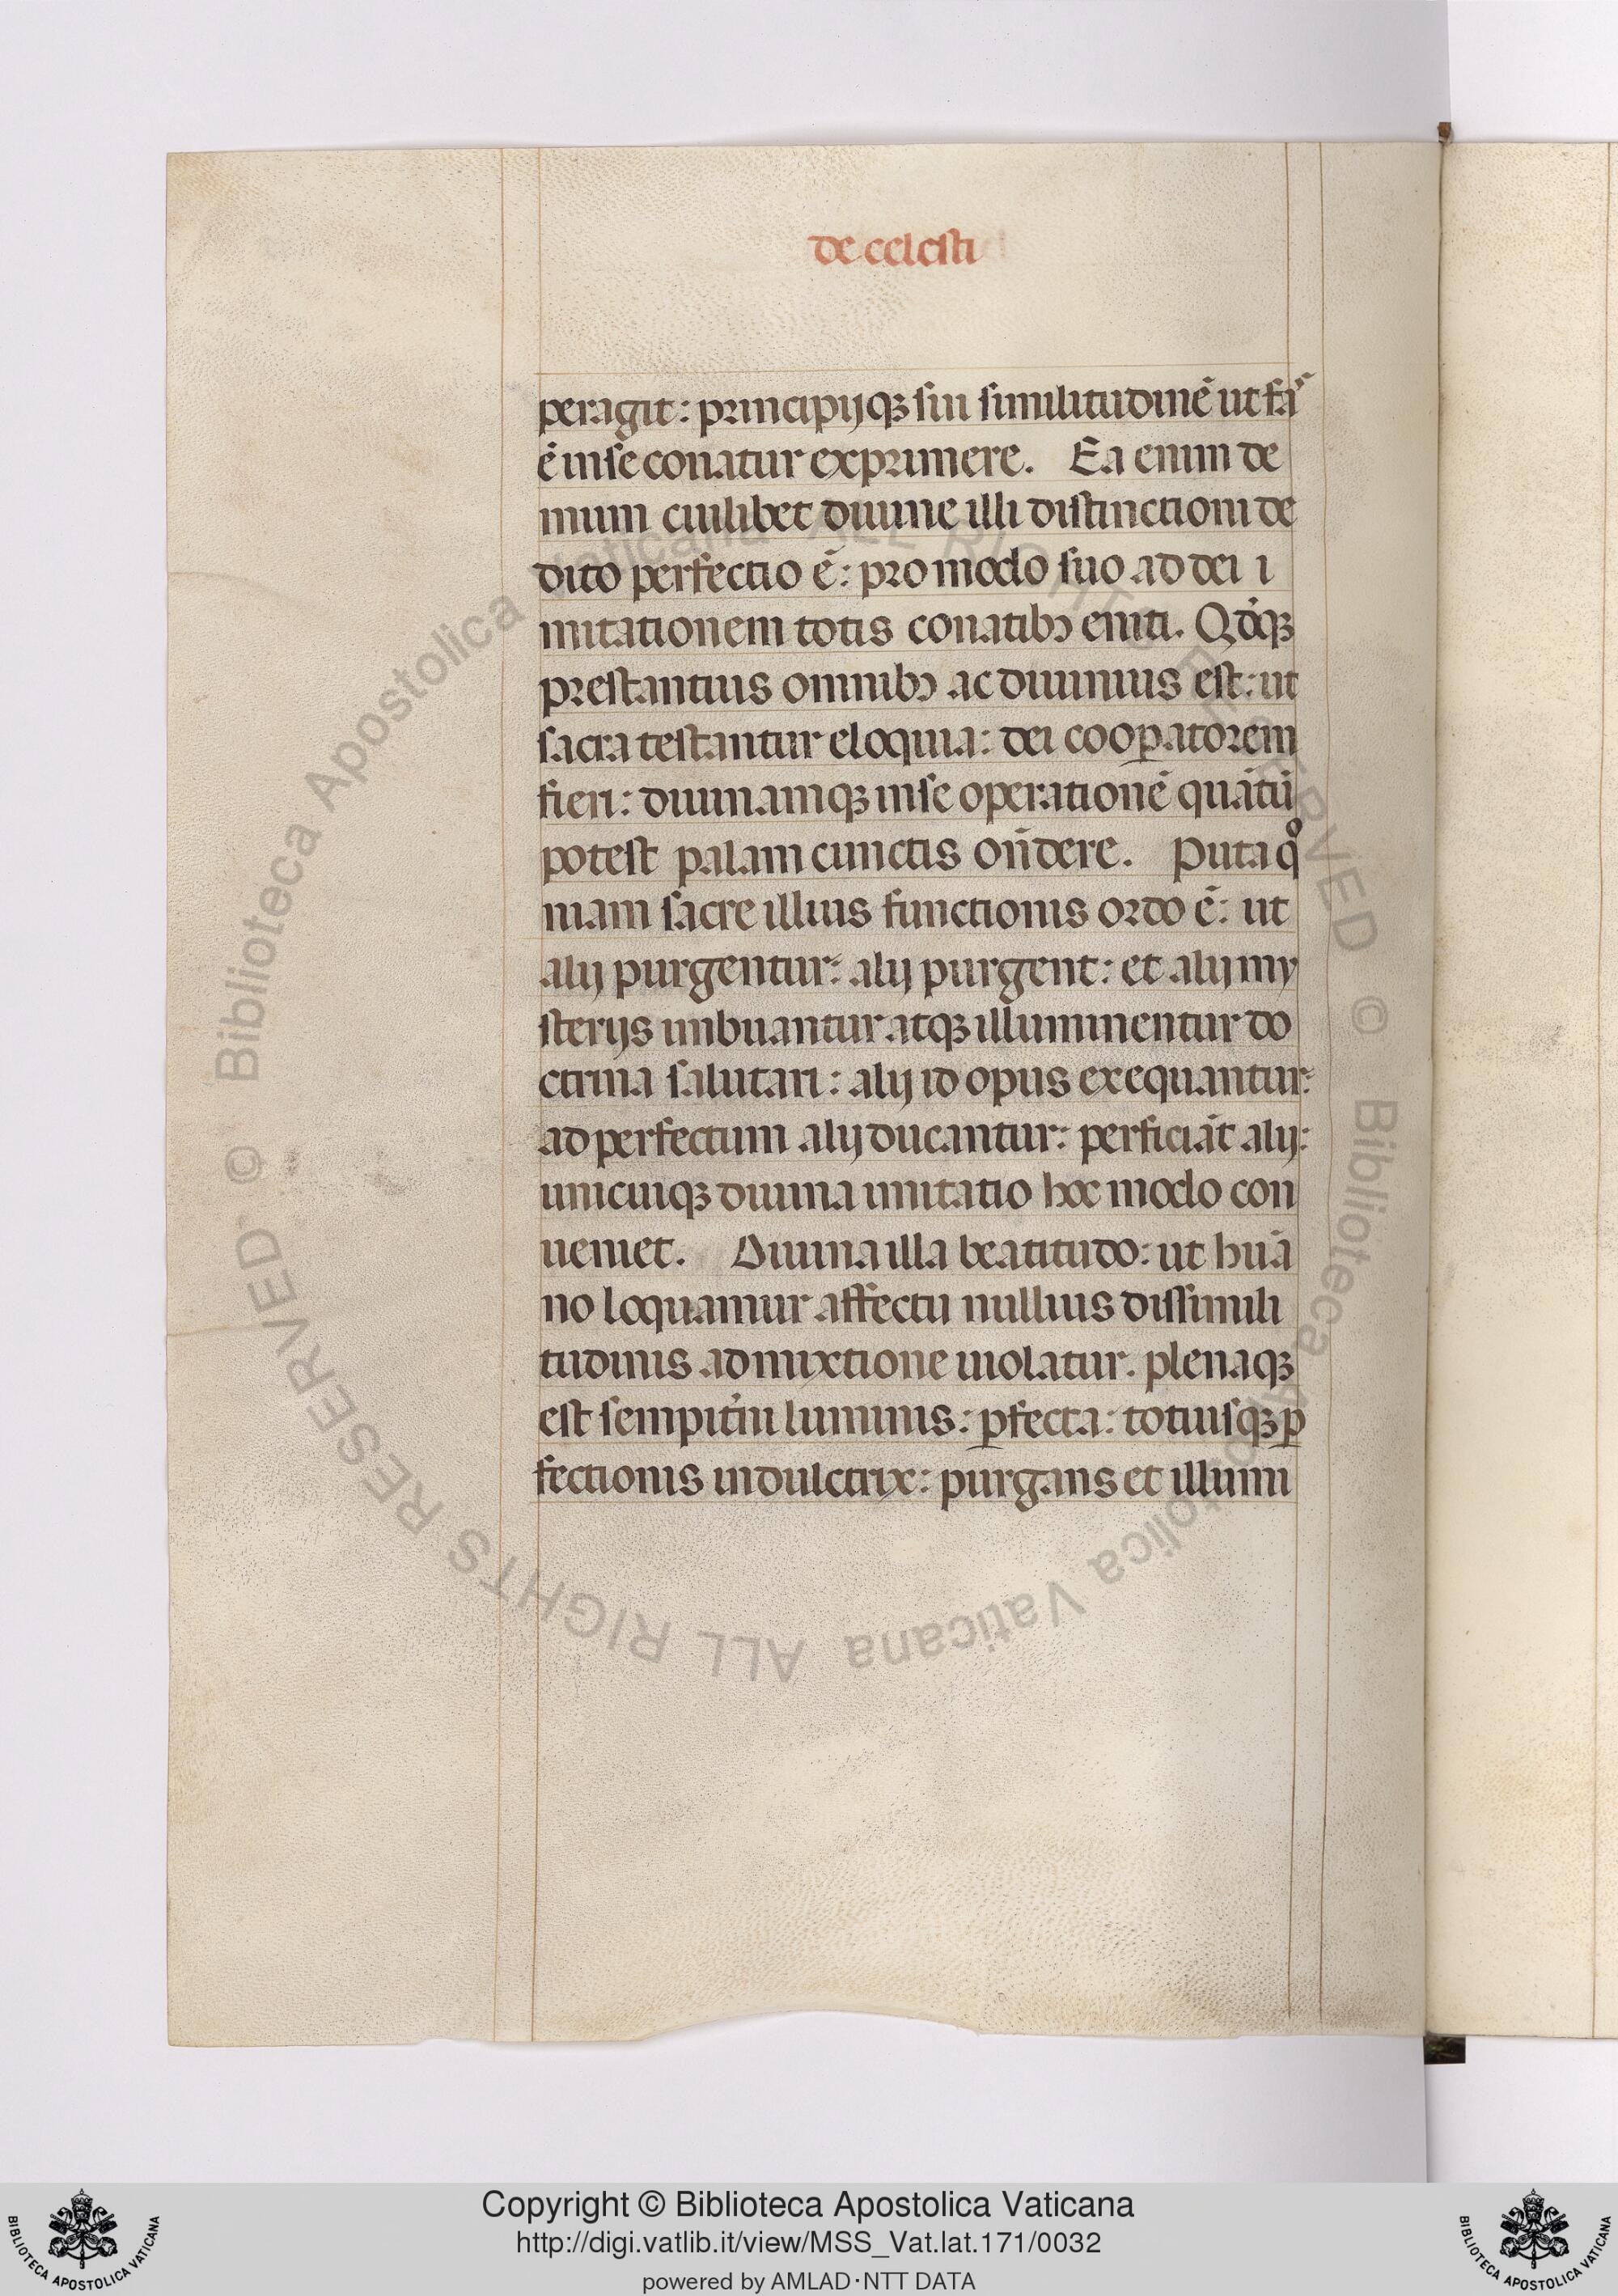 de celesti
peragit: principijqꝫ sui similitudinē ut fa᷑
ē in se conatur exprimere. Ea enim de
mum cuilibet diuine illi distinctioni de
dito perfectio ē: pro modo suo ad dei i
mitationem totis conatibꝰ eniti. Qdqꝫ
prestantius omnibꝰ ac diuinius est: ut
sacra testantur eloquia: dei cooꝑatorem
fieri: diuinamqꝫ in se operationē quātū
potest palam cunctis oñdere. Puta qº
niam sacre illius functionis ordo ē: ut
alij purgentur: alij purgent: et alij my
sterijs imbuantur atqꝫ illuminentur do
ctrina salutari: alij id opus exequantur:
ad perfectum alij ducantur: perficiāt alij:
unicuiqꝫ diuina imitatio hoc modo con
ueniet. Diuina illa beatitudo: ut huā
no loquamur affectu nullius dissimili
tudinis admixtione uiolatur. plenaqꝫ
est sempit̾ni luminis: ꝑfecta: totiusqꝫ ꝑ
fectionis indulctrix: purgans et illumi
© Biblioteca Apostolica Vaticana ALL RIGHTS RESERVED © Biblioteca Apostolica Vaticana ALL RIGHTS RESERVED
Copyright © Biblioteca Apostolica Vaticana
http://digi.vatlib.it/view/MSS_Vat.lat.171/0032
powered by AMLAD·NTT DATA
BIBLIOTECA APOSTOLICA VATICANA
BIBLIOTECA APOSTOLICA VATICANA